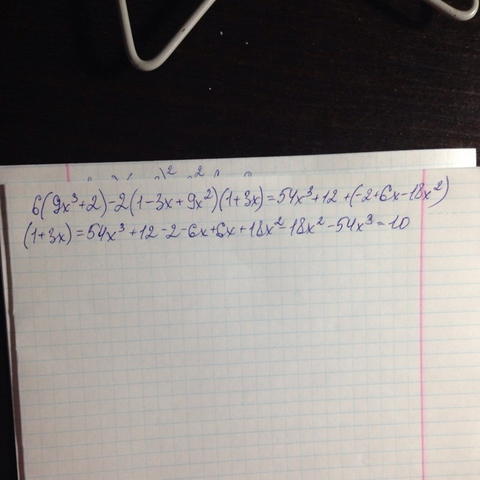 6(9x³+2)-2(1-3x+9x²)(1+3x)=54x³+12+(-2+6x-18x²)
(1+3x)=54x³+12-2-6x+6x+18x²-18x²-54x³=10